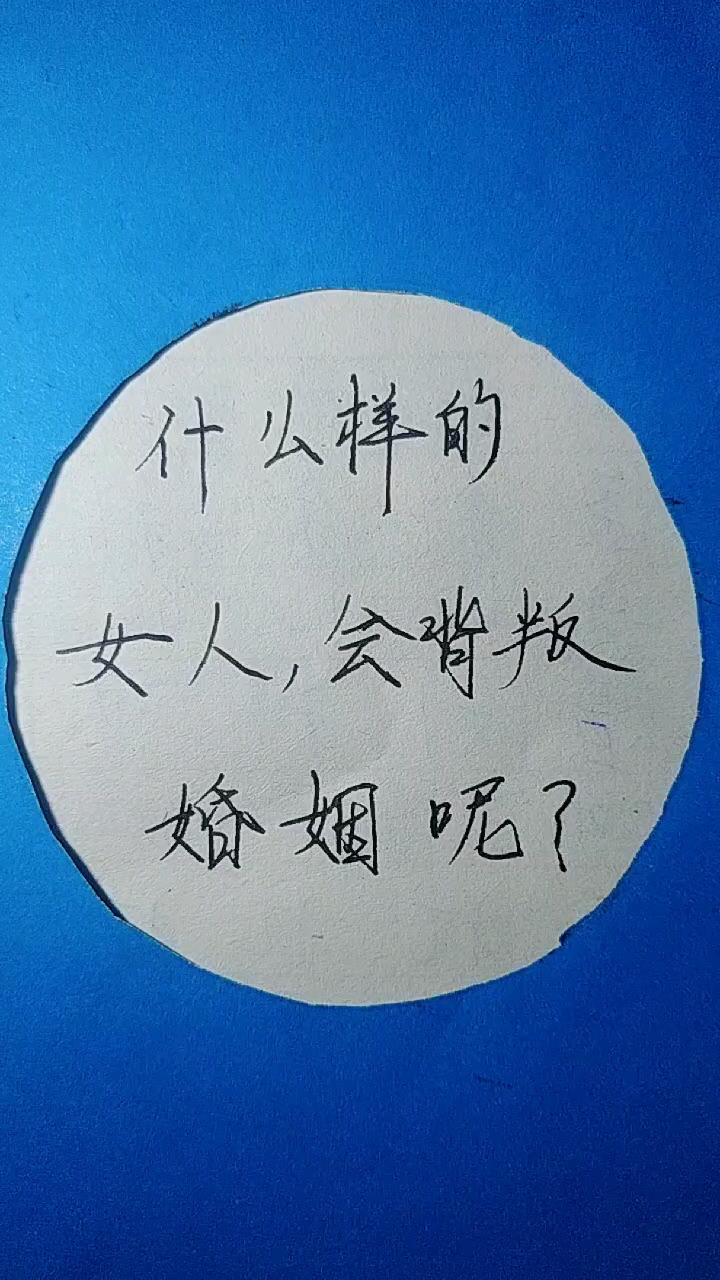 什么样的
女人,会背叛
婚姻呢?